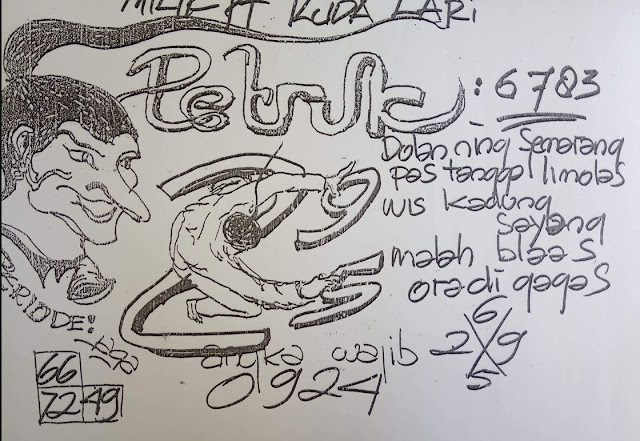 MILIK PT KUDA LARI
Petruk : 6783
Dolan ning Semarang
pas tanggal limolas
wis kadung
sayang
malah blaas
ora di gagas
RIODE!
66
72 49
angka wajib
0924
6
2 9
5